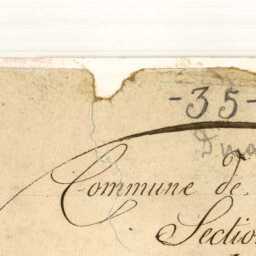 -35-
Commune de
Section